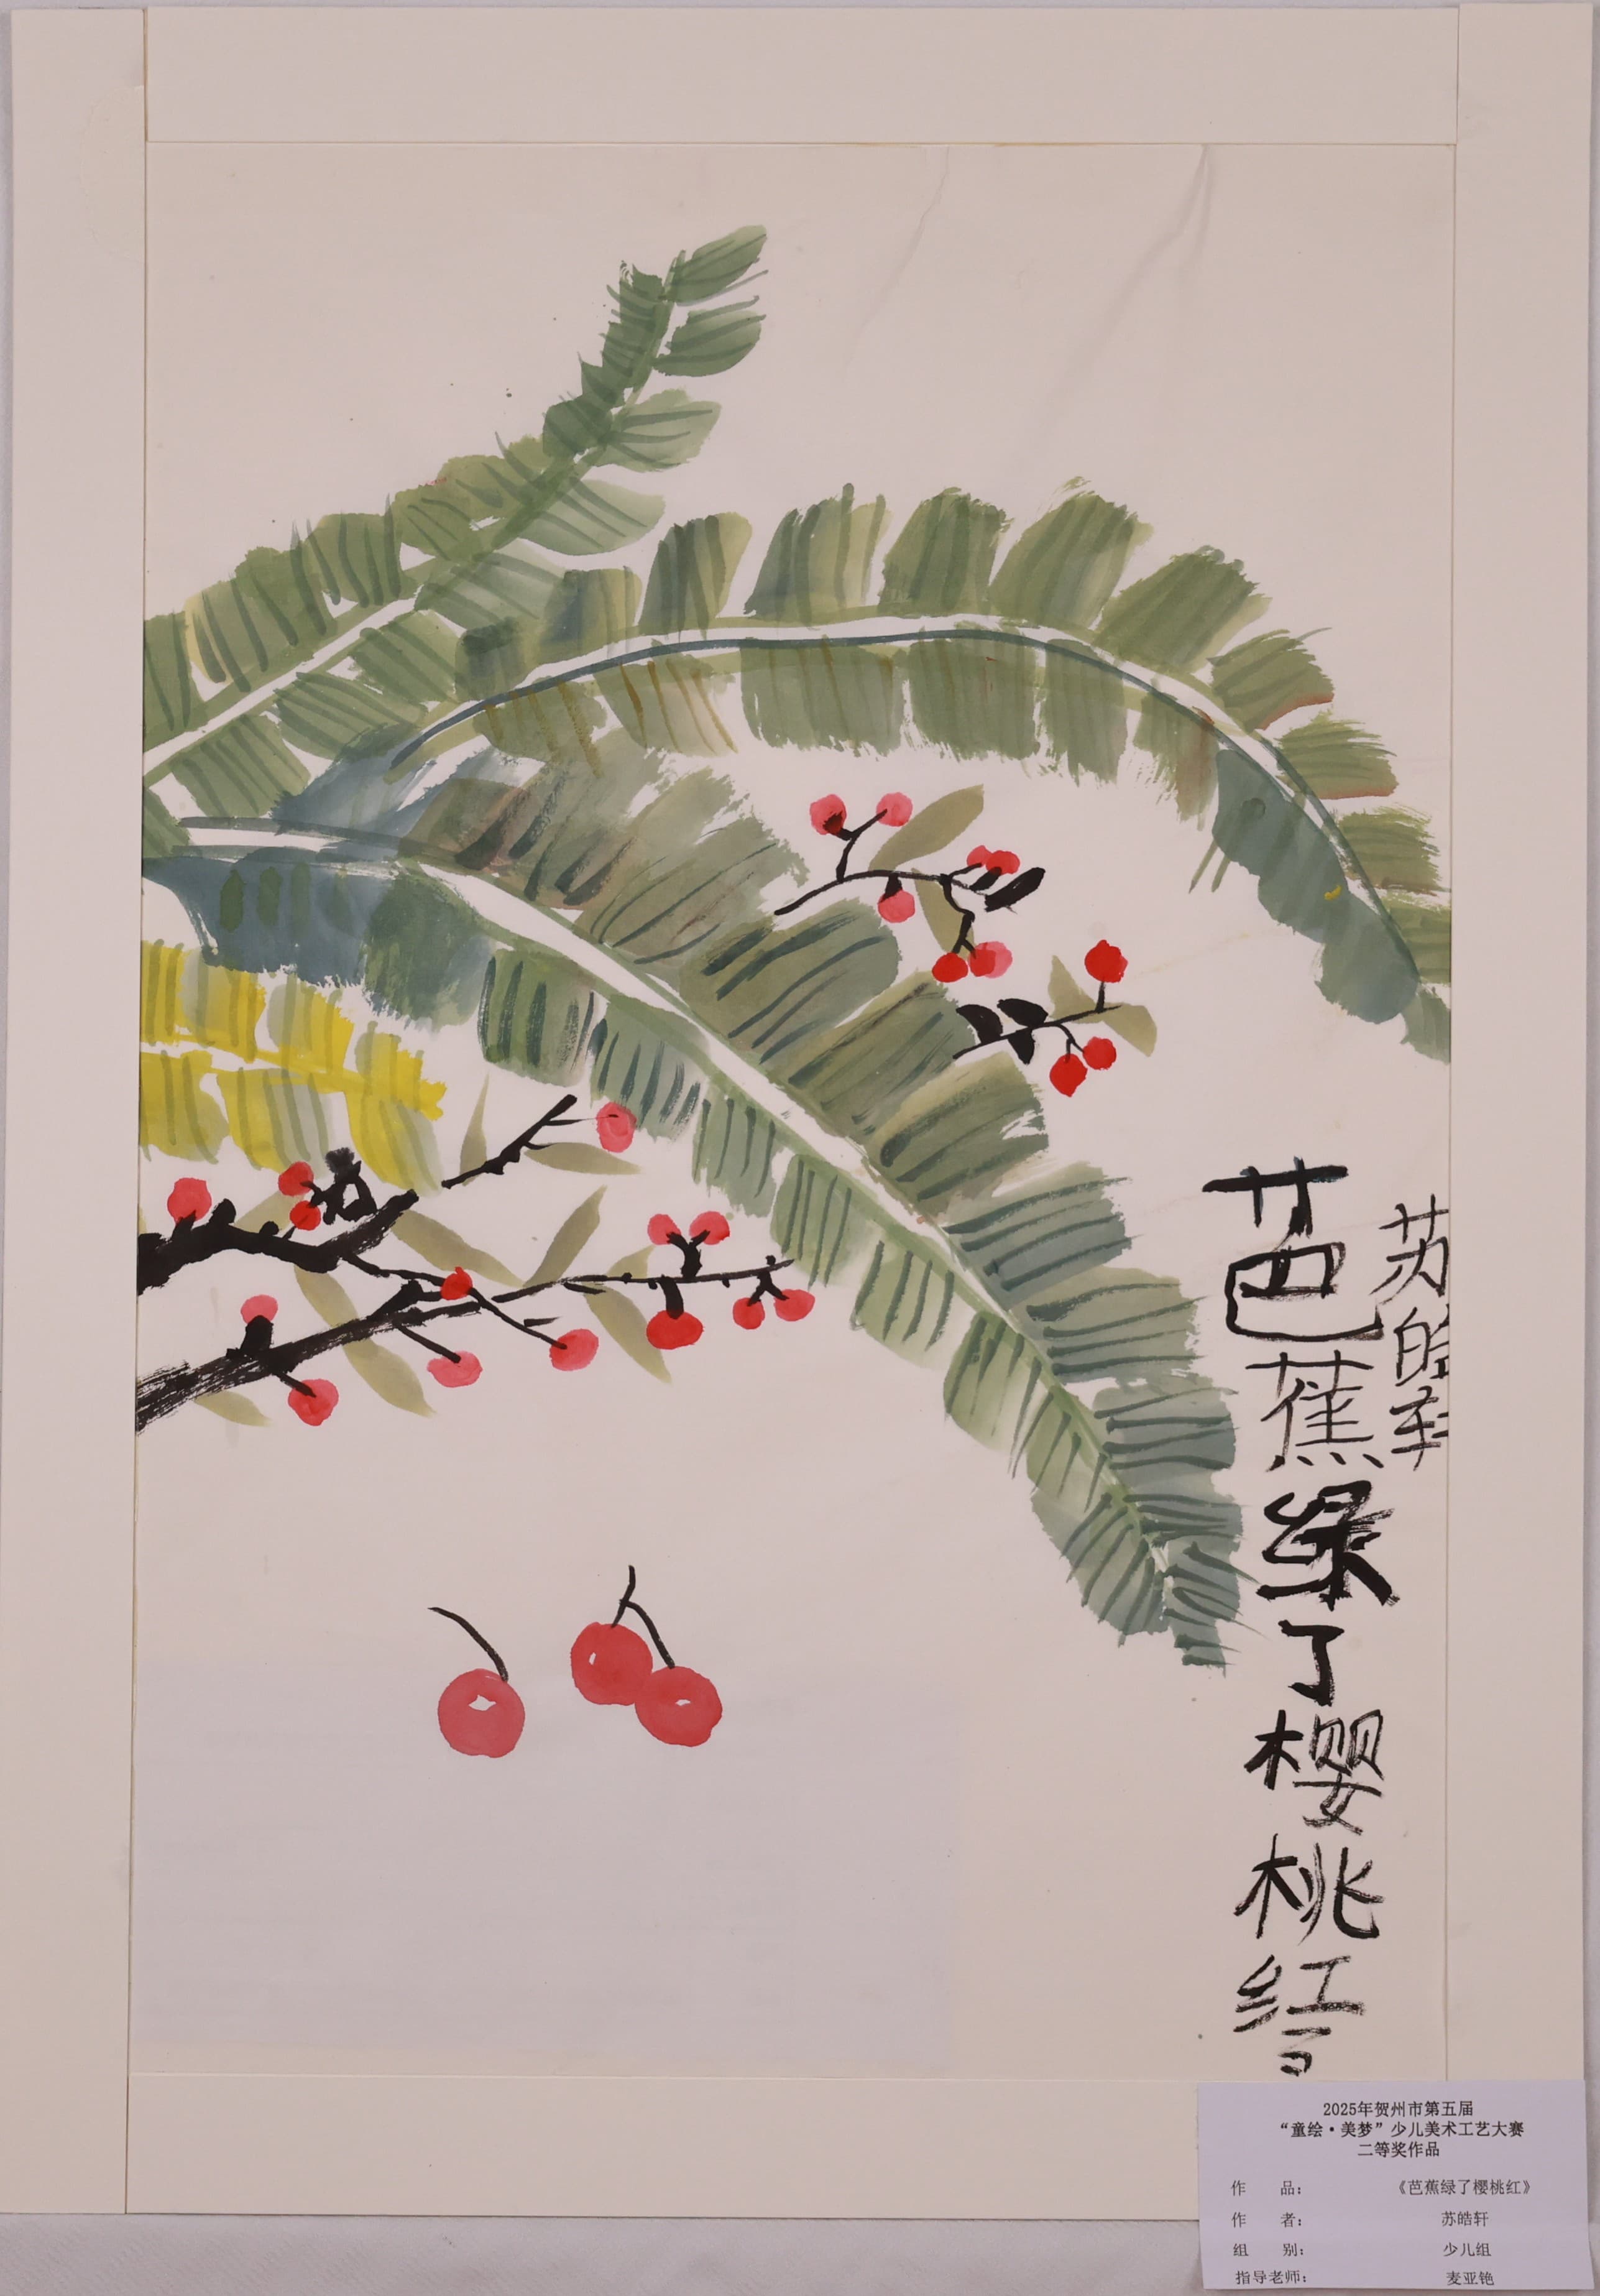 苏皓轩
芭蕉绿了樱桃红
2025年贺州市第五届
“童绘·美梦”少儿美术工艺大赛
二等奖作品
作 品： 《芭蕉绿了樱桃红》
作 者： 苏皓轩
组 别： 少儿组
指导老师： 麦亚铯